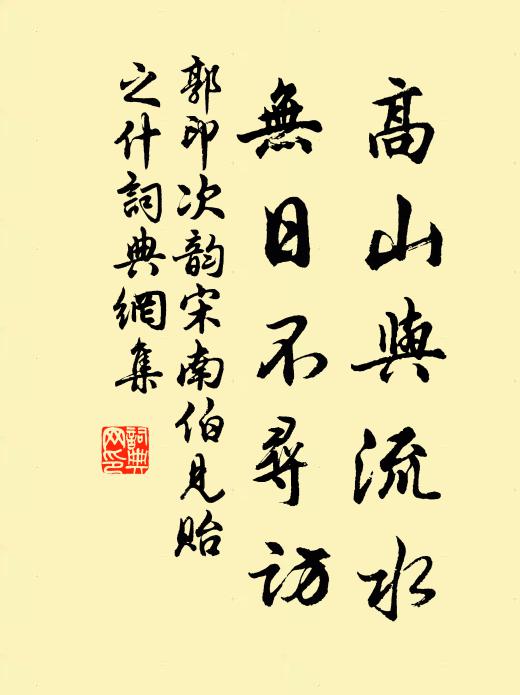 高山與流水
無日不尋訪
郭印次韵宋南伯見貽
之什詞典網集
詞典网印